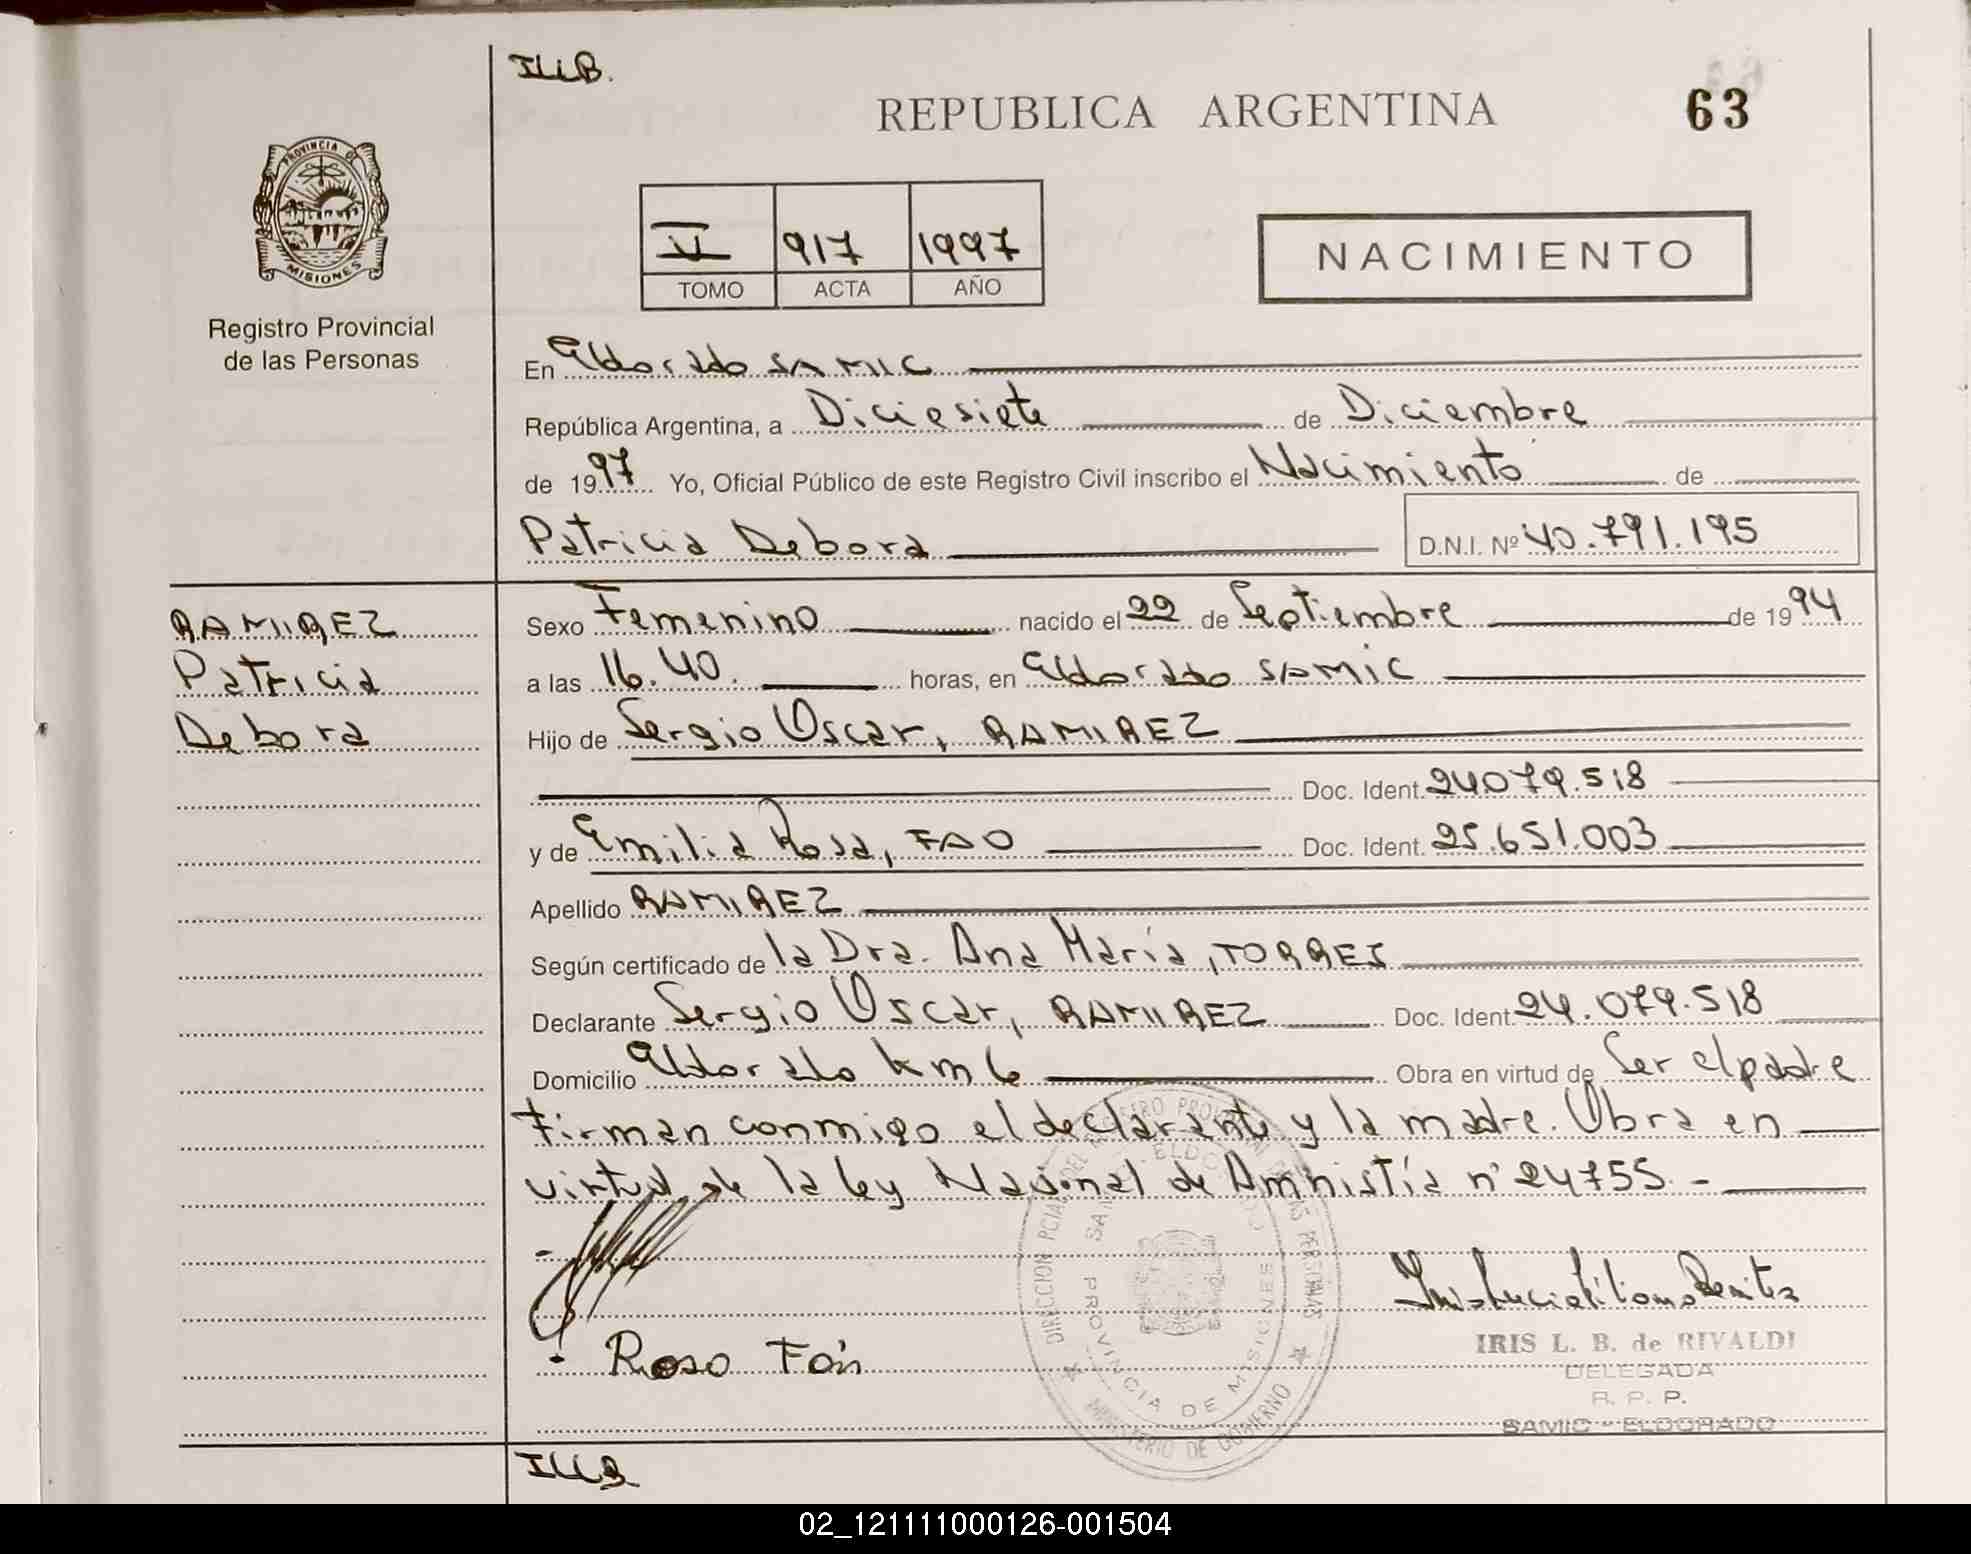 ILLB.
REPUBLICA ARGENTINA
63
PROVINCIA DE
MISIONES
Registro Provincial
de las Personas
V 917 1997
TOMO ACTA AÑO
NACIMIENTO
En Eldorado SAMIC
República Argentina, a Diciesiete de Diciembre
de 1997 Yo, Oficial Público de este Registro Civil inscribo el Nacimiento de
Patricia Debora D.N.I. Nº 40.791.195
RAMIREZ
Patricia
Debora
Sexo Femenino nacido el 22 de Septiembre de 1994
a las 16.40. horas, en Eldorado SAMIC
Hijo de Sergio Oscar, RAMIREZ
Doc. Ident. 24.079.518
y de Emilia Rosa, FAO Doc. Ident. 25.651.003
Apellido RAMIREZ
Según certificado de la Dra. Ana María, TORRES
Declarante Sergio Oscar, RAMIREZ Doc. Ident. 24.079.518
Domicilio Eldorado km 6 Obra en virtud de Ser el padre
Firman conmigo el declarante y la madre. Obra en
virtud de la ley Nacional de Amnistía nº 24755.-
DIRECCION PCIAL DEL REGISTRO PROVINCIAL DE LAS PERSONAS
MINISTERIO DE GOBIERNO
SAMIC ELDORADO
PROVINCIA DE MISIONES
IRIS L. B. de RIVALDI
DELEGADA
R. P. P.
SAMIC - ELDORADO
Rosa
ILLB
02_121111000126-001504